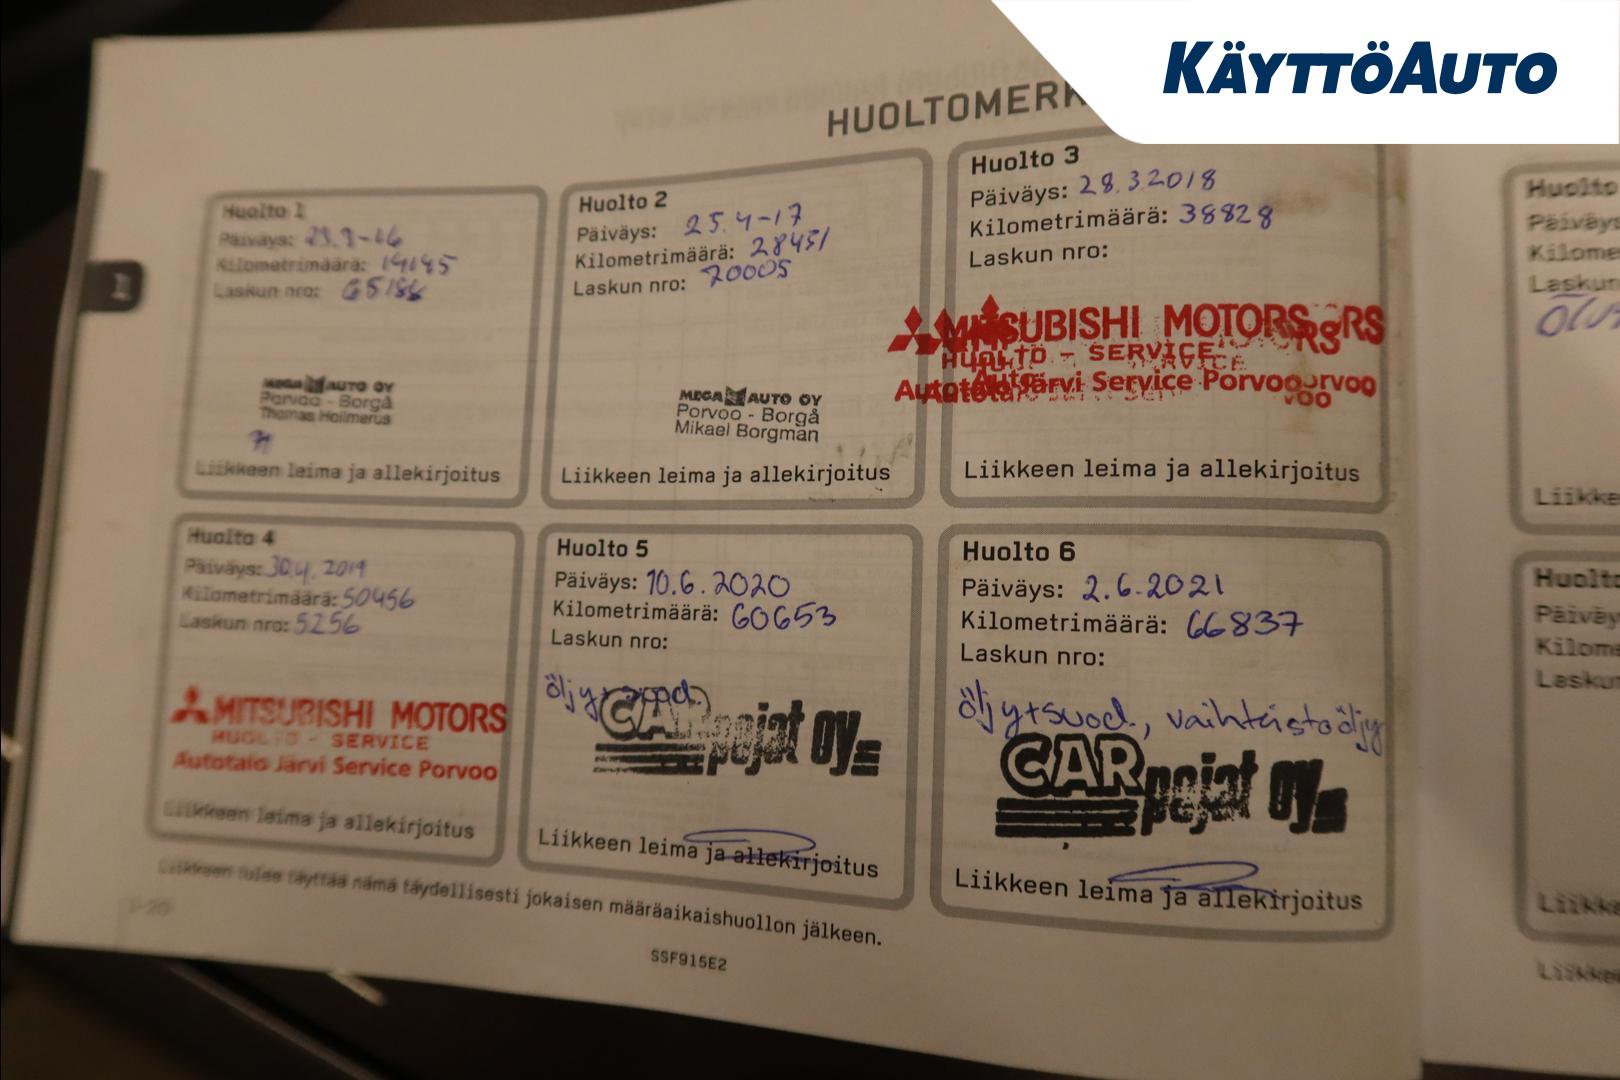 KÄYTTÖAUTO
HUOLTOMERK
Huolto 1
Päiväys:
Kilometrimäärä:
Laskun nro:
MEGA AUTO OY
Porvoo - Borgå
Thomas Holmerus
Liikkeen leima ja allekirjoitus
Huolto 2
Päiväys: 25.4-17
Kilometrimäärä: 28451
Laskun nro: 70005
MEGA AUTO OY
Porvoo - Borgå
Mikael Borgman
Liikkeen leima ja allekirjoitus
Huolto 3
Päiväys: 28.3.2018
Kilometrimäärä: 38828
Laskun nro:
MITSUBISHI MOTORS
HUOLTO - SERVICE
Autotalo Järvi Service Porvoo
Liikkeen leima ja allekirjoitus
Huolto 4
Päiväys: 30.4.2019
Kilometrimäärä: 50456
Laskun nro: 5256
MITSUBISHI MOTORS
HUOLTO - SERVICE
Autotalo Järvi Service Porvoo
Liikkeen leima ja allekirjoitus
Huolto 5
Päiväys: 10.6.2020
Kilometrimäärä: 60653
Laskun nro:
öljy+suod.
CAR pojat oy
Liikkeen leima ja allekirjoitus
Huolto 6
Päiväys: 2.6.2021
Kilometrimäärä: 66837
Laskun nro:
öljy+suod., vaihteistoöljy
CAR pojat oy
Liikkeen leima ja allekirjoitus
Liikkeen tulee täyttää nämä täydellisesti jokaisen määräaikaishuollon jälkeen.
1-20
SSF915E2
Huolto
Päiväys
Kilome
Laskun
Liikke
Huolto
Päiväy
Kilome
Laskun
Liikke
Liikke